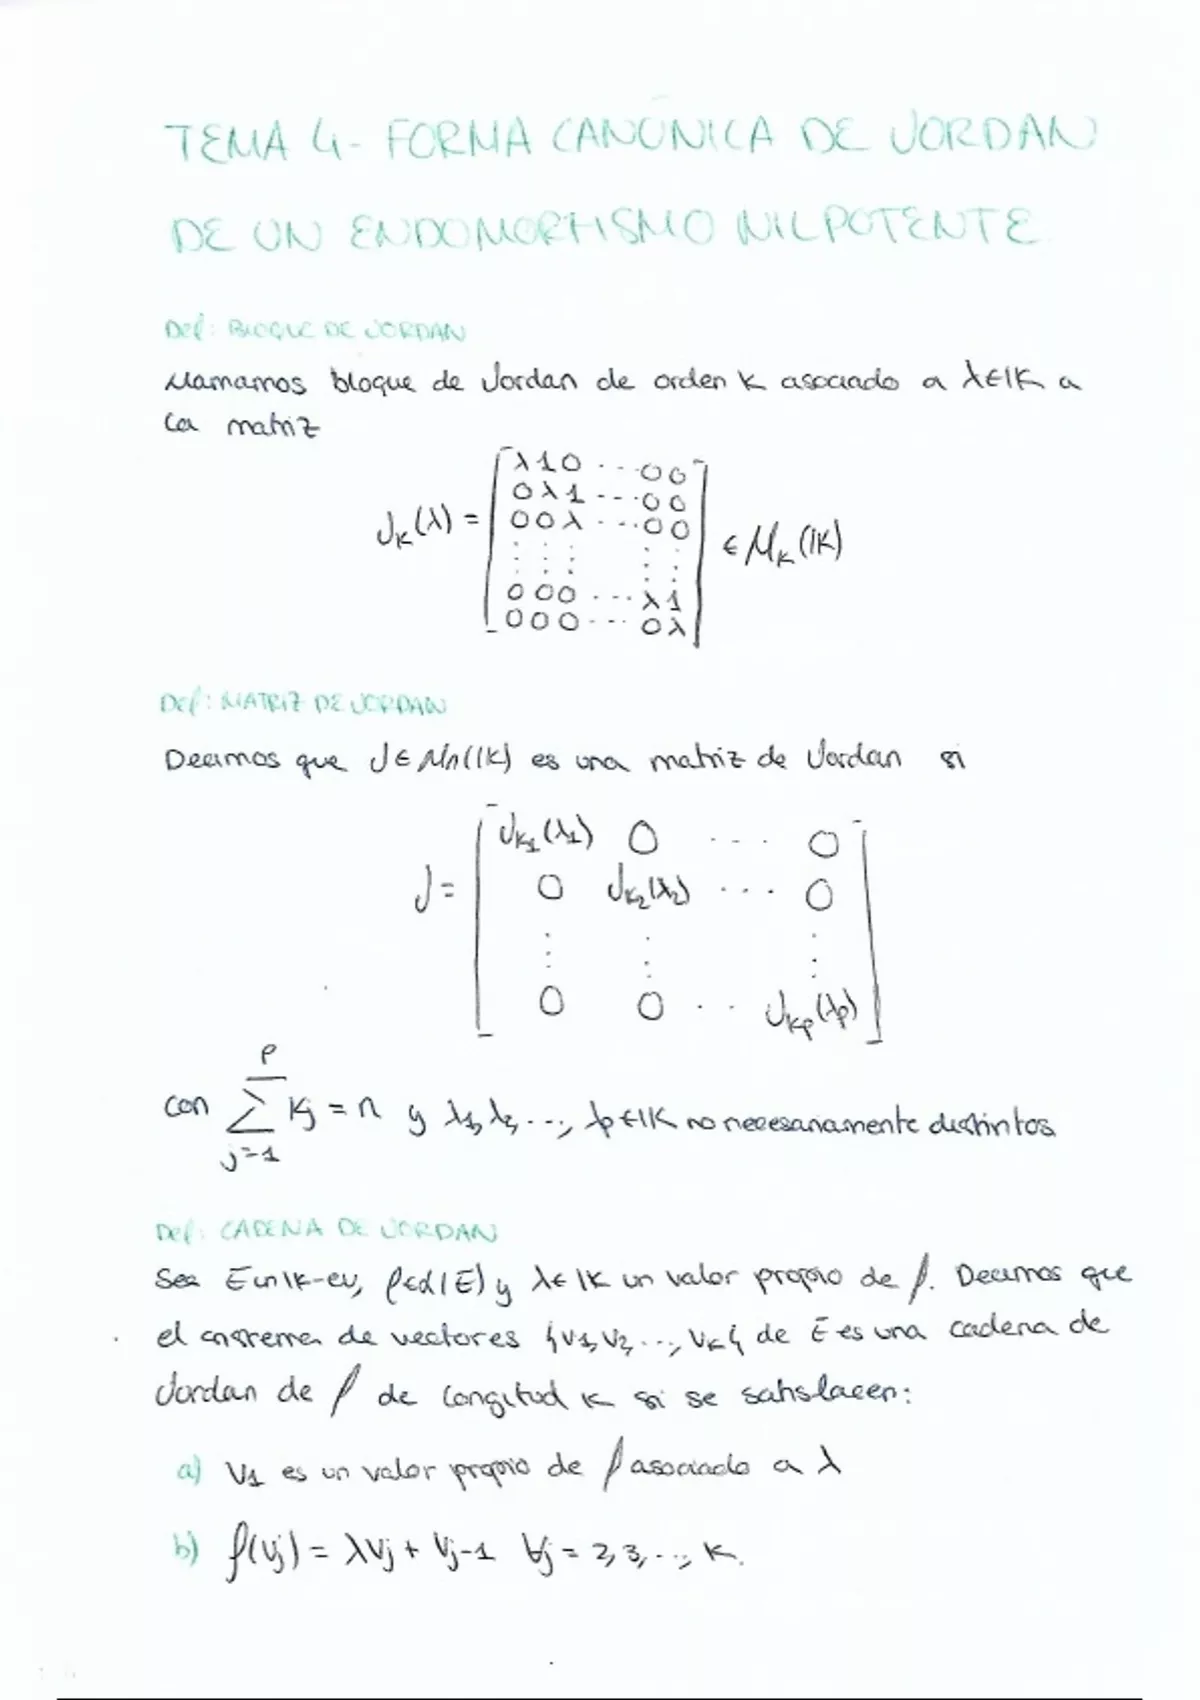 TEMA 4- FORMA CANÓNICA DE JORDAN
DE UN ENDOMORFISMO NILPOTENTE.
Def: BLOQUE DE JORDAN
Llamamos bloque de Jordan de orden k asociado a λ∈𝕂 a
la matriz
λ 1 0 ... 0 0
0 λ 1 ... 0 0
J_k(λ) = 0 0 λ ... 0 0 ∈ M_k(𝕂)
⋮ ⋮ ⋮ ⋮ ⋮
0 0 0 ... λ 1
0 0 0 ... 0 λ
Def: MATRIZ DE JORDAN
Decimos que J∈Mn(𝕂) es una matriz de Jordan si
J_k1(λ1) 0 ... 0
J = 0 J_k2(λ2) ... 0
⋮ ⋮ ⋮
0 0 .. J_kp(λp)
con ∑_{j=1}^{p} kj = n y λ1, λ2, ..., λp∈𝕂 no necesariamente distintos
Def: CADENA DE JORDAN
Sea E un 𝕂-ev, f∈L(E) y λ∈𝕂 un valor propio de f. Decimos que
el de vectores {v1, v2, ..., vk} de E es una cadena de
Jordan de f de longitud k si se satisfacen:
a) v1 es un valor propio de f asociado a λ
b) f(vj) = λvj + vj-1 ∀j = 2, 3, ..., k.